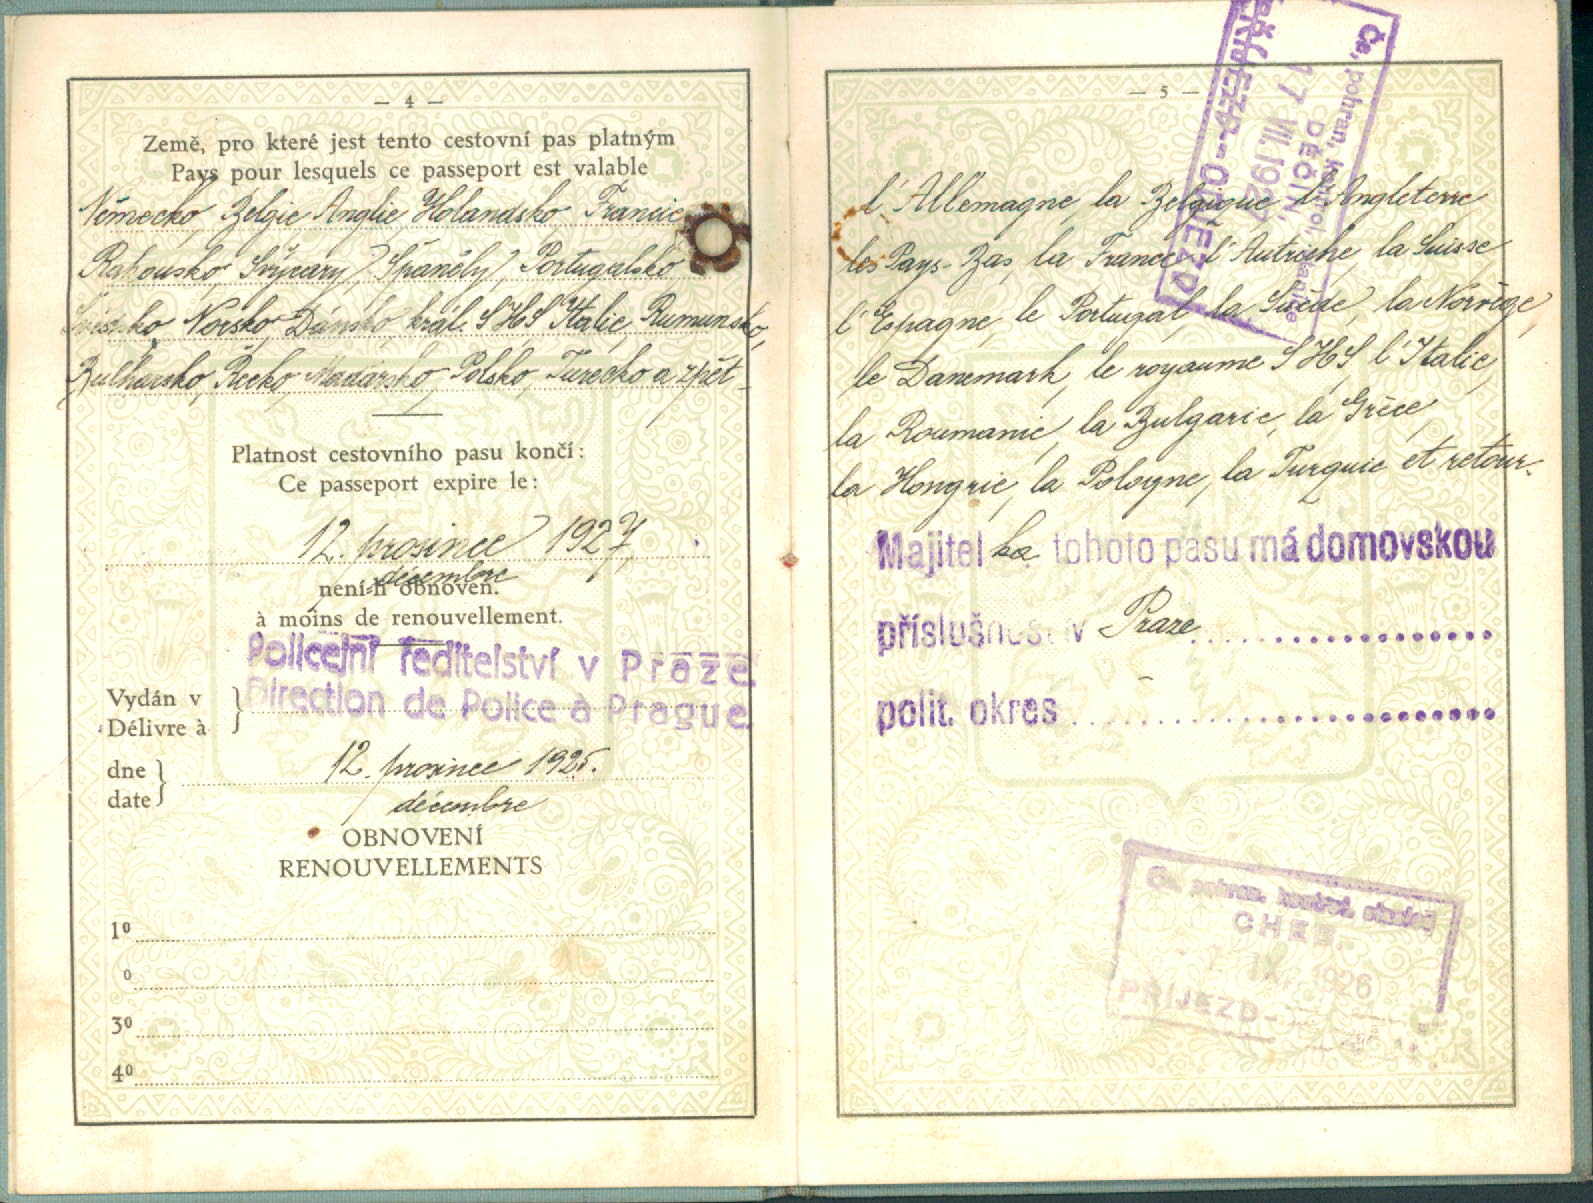 — 4 —
Země, pro které jest tento cestovní pas platným
Pays pour lesquels ce passeport est valable
Německo, Belgie, Anglie, Holandsko, Francie
Rakousko, Švýcary, Španěly, Portugalsko
Švédsko, Norsko, Dánsko, král. SHS, Italie, Rumunsko,
Bulharsko, Řecko, Maďarsko, Polsko, Turecko a zpět
Platnost cestovního pasu končí:
Ce passeport expire le:
12. prosince 1927,
décembre
není-li obnoven.
à moins de renouvellement.
Policejní ředitelství v Praze.
Direction de Police à Prague.
Vydán v
Délivre à
12. prosince 1925.
dne
date
décembre
OBNOVENÍ
RENOUVELLEMENTS
1º
º
3º
4º
— 5 —
Čs. pohran. kontrol.
DĚČÍN
17 VII. 192
l'Allemagne, la Belgique, l'Angleterre
les Pays-Bas, la France, l'Autriche, la Suisse
l'Espagne, le Portugal, la Suède, la Norvège,
le Danemark, le royaume SHS, l'Italie,
la Roumanie, la Bulgarie, la Grèce,
la Hongrie, la Pologne, la Turquie et retour.
Majitel ka tohoto pasu má domovskou
příslušnost v Praze
polit. okres
Čs. pohran. kontrol.
CHEB.
IX. 1926
PŘÍJEZD